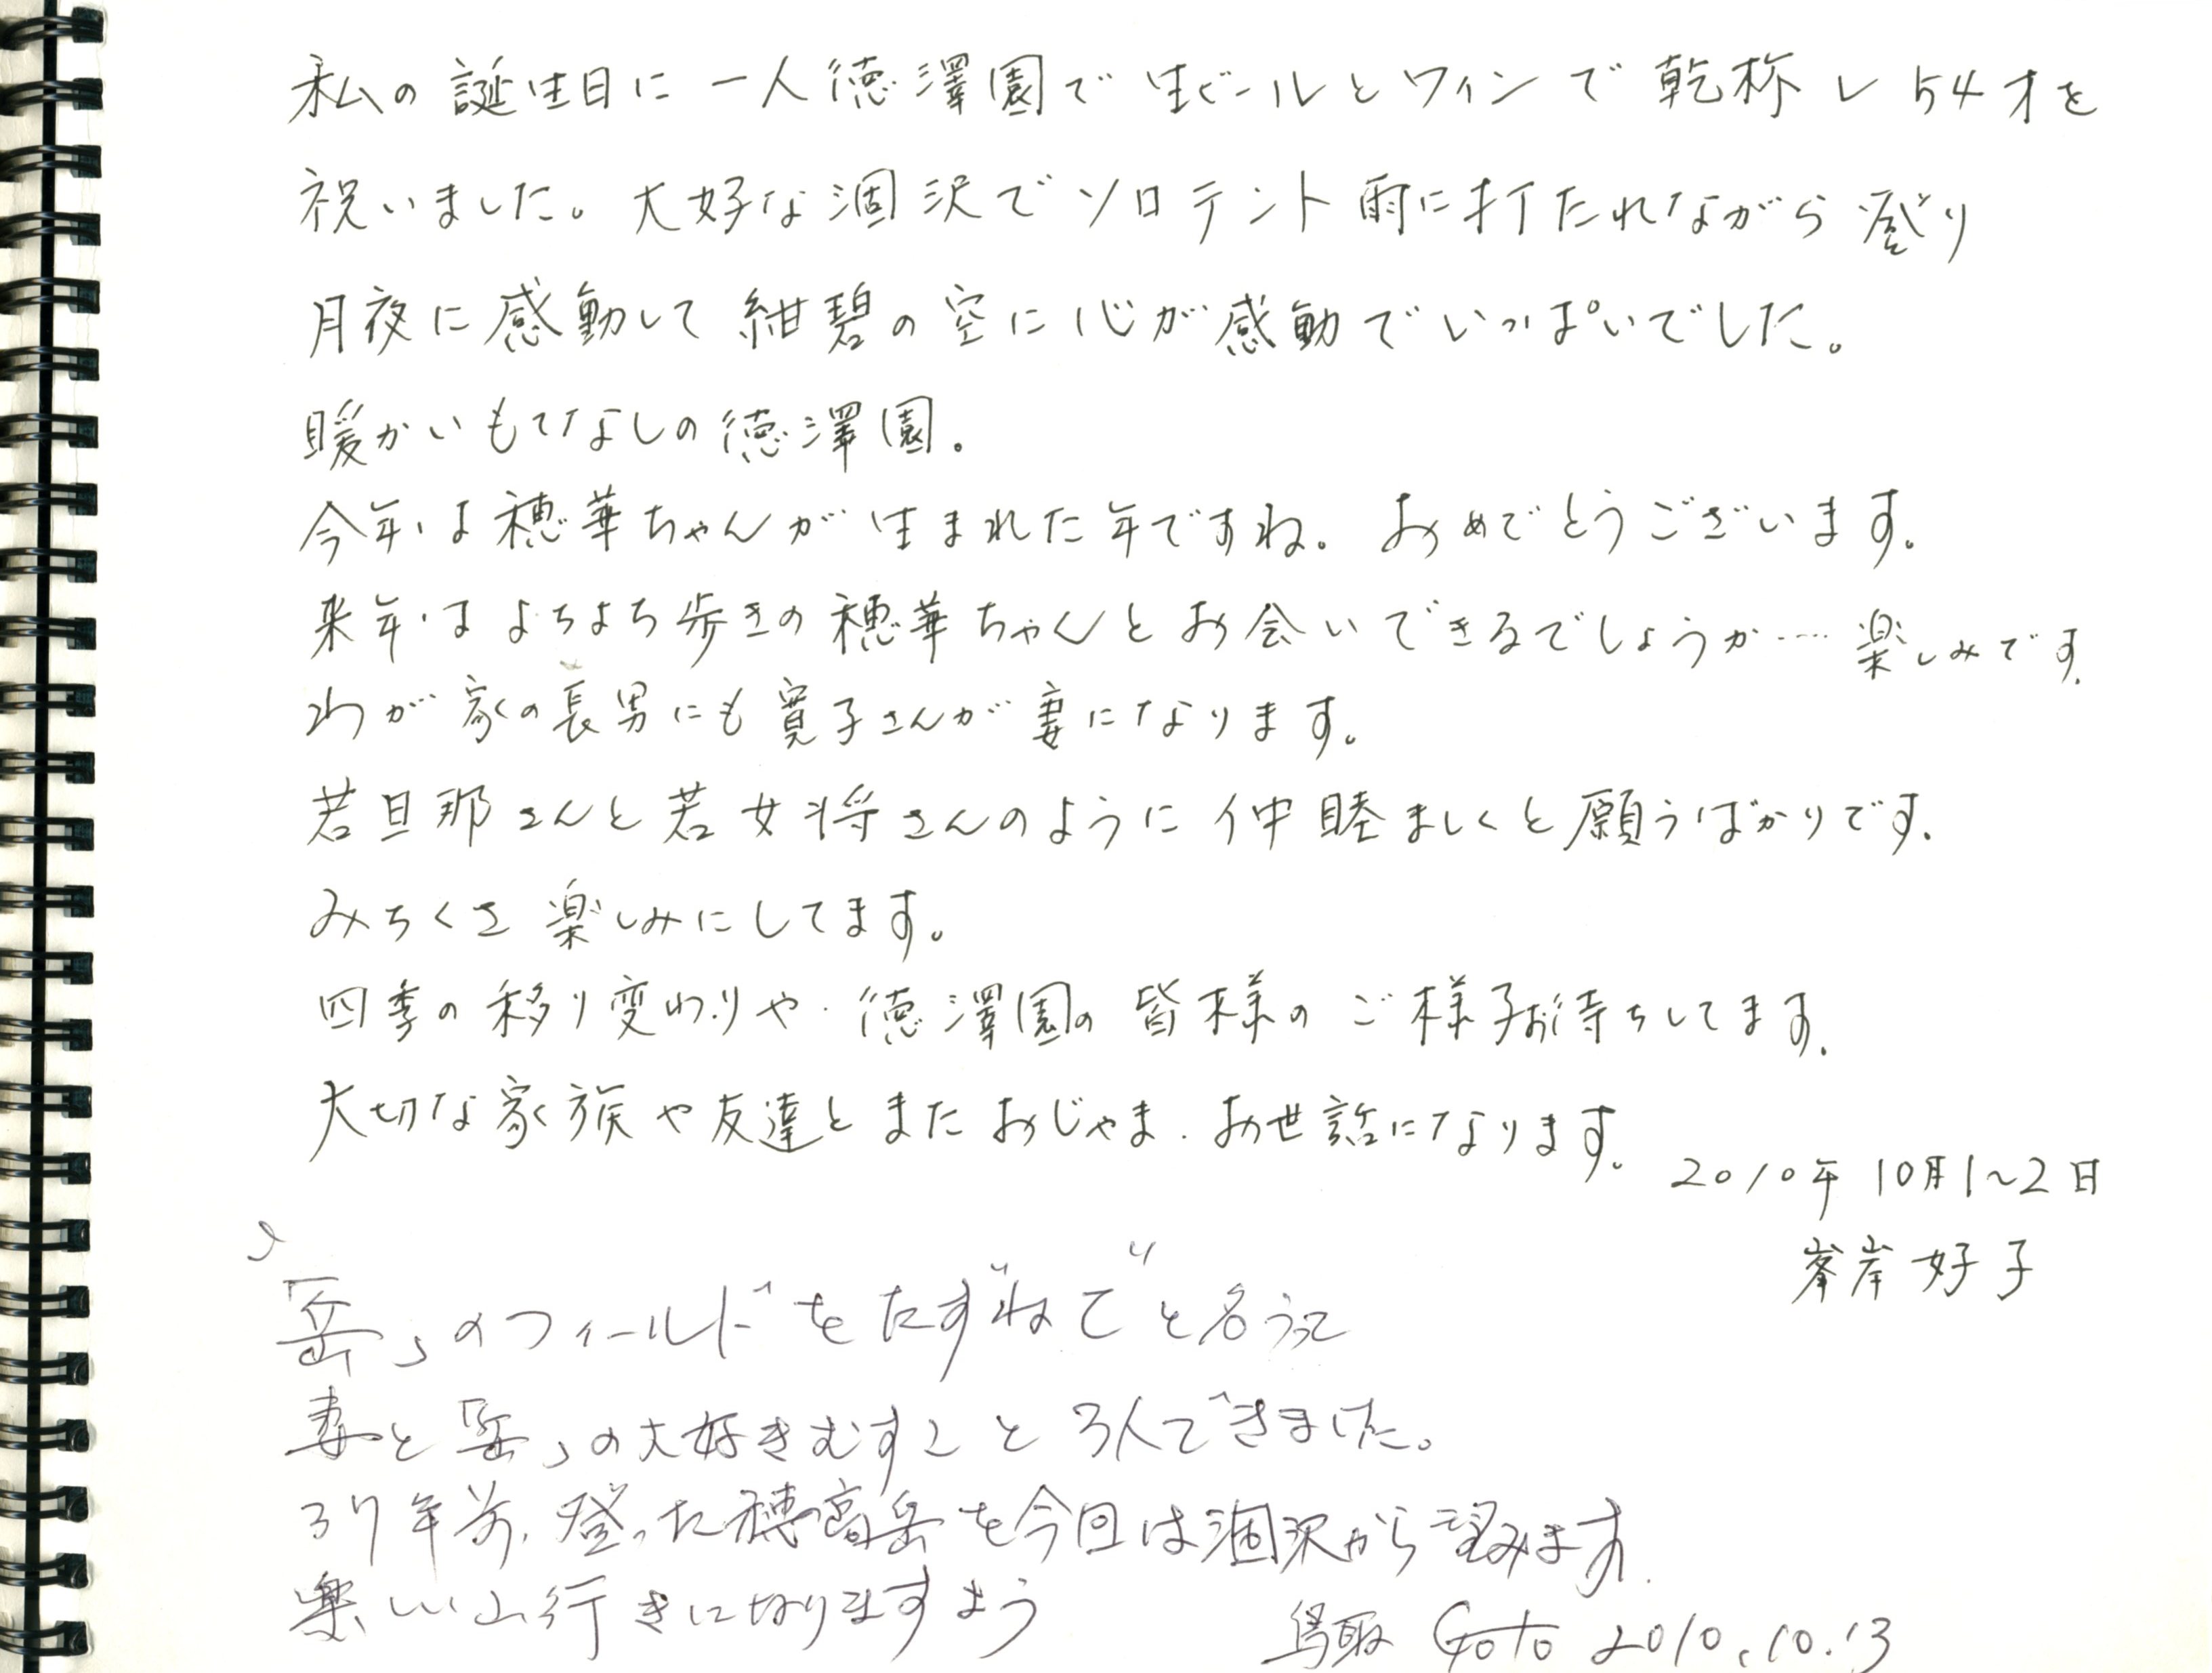 私の誕生日に一人徳澤園で生ビールとワインで乾杯し54才を
祝いました。大好な涸沢でソロテント雨に打たれながら登り
月夜に感動して紺碧の空に心が感動でいっぱいでした。
暖かいもてなしの徳澤園。
今年は穂華ちゃんが生まれた年ですね。おめでとうございます。
来年はよちよち歩きの穂華ちゃんとお会いできるでしょうか……楽しみです。
わが家の長男にも寛子さんが妻になります。
若旦那さんと若女将さんのように仲睦ましくと願うばかりです。
みちくさ楽しみにしてます。
四季の移り変わりや徳澤園の皆様のご様子お待ちしてます。
大切な家族や友達とまたおじゃま、お世話になります。
2010年10月1〜2日
峯岸好子
「岳」のフィールドをたずねて〟と名うって
妻と「岳」の大好きむすことろ人できました。
37年前、登った穂高岳を今回は涸沢から望みます。
楽しい山行きになりますよう
鳥取 Goto 2010.10.13